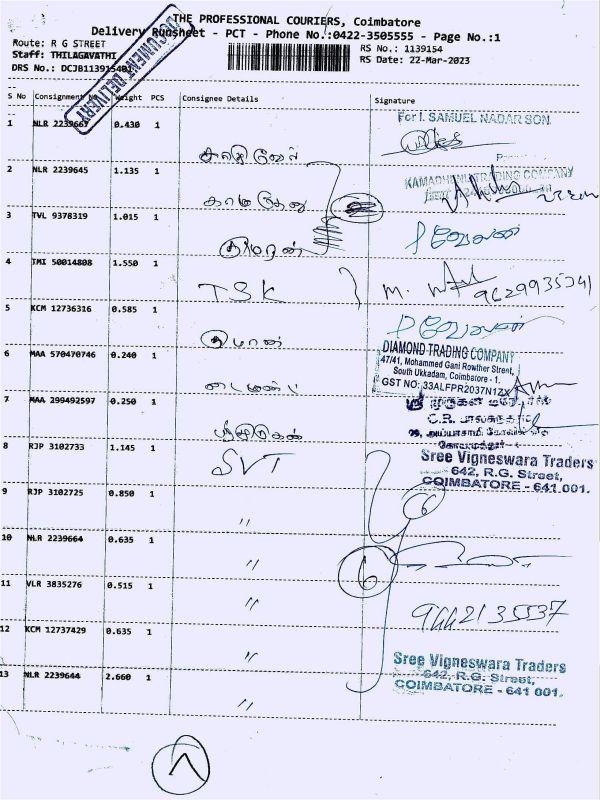 THE PROFESSIONAL COURIERS, Coimbatore
Delivery Runsheet - PCT - Phone No.:0422-3505555 - Page No.:1
Route: R G STREET
RS No.: 1139154
Staff: THILAGAVATHI
RS Date: 22-Mar-2023
DRS No.: DCJB1139154
DOCUMENT DELIVERY
S No Consignment No Weight PCS Consignee Details Signature
For I. SAMUEL NADAR SON
1 NLR 2239667 0.430 1
2 NLR 2239645 1.135 1
KAMADHENU TRADING COMPANY
காமதேனு
3 TVL 9378319 1.015 1
குமரன்
4 TMI 50014808 1.550 1
T.S.K
M. 9629935041
5 KCM 12736316 0.585 1
6 MAA 570470746 0.240 1
DIAMOND TRADING COMPANY
47/41, Mohammed Gani Rowther Street,
South Ukkadam, Coimbatore - 1.
GST NO: 33ALFPR2037N1ZX
டைமண்ட்
7 MAA 299492597 0.250 1
ஸ்ரீ முருகன்
C.R. பாலசுந்தரம்
8 RJP 3102733 1.145 1
SVT
Sree Vigneswara Traders
642, R.G. Street,
COIMBATORE - 641 001.
9 RJP 3102725 0.850 1
"
6
10 NLR 2239664 0.635 1
"
6
11 VLR 3835276 0.515 1
"
9442135537
12 KCM 12737429 0.635 1
"
Sree Vigneswara Traders
642, R.G. Street,
COIMBATORE - 641 001.
13 NLR 2239644 2.660 1
"